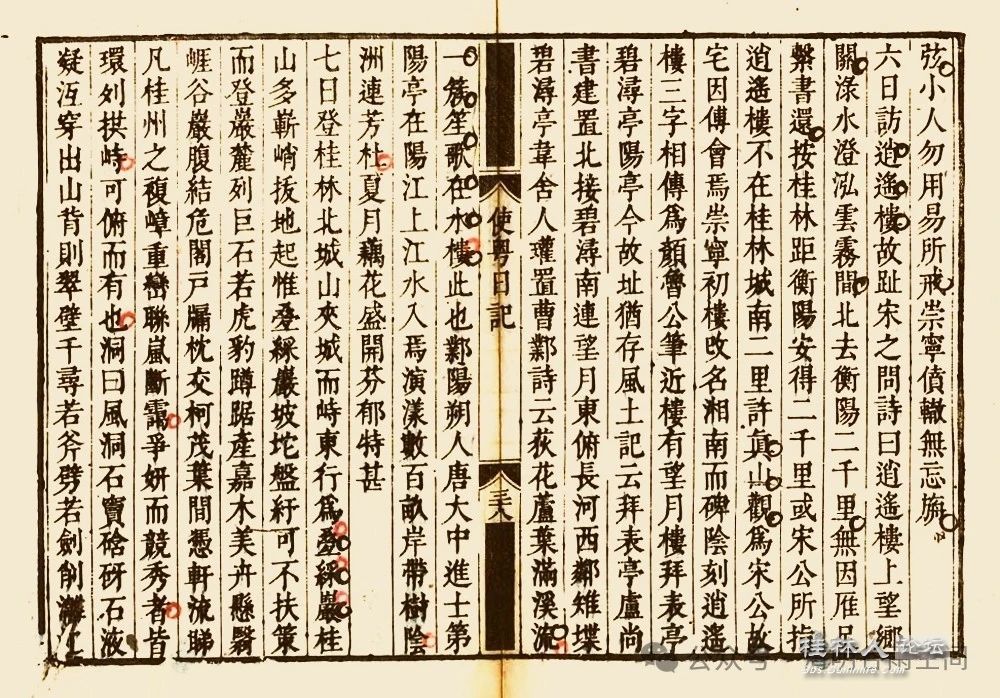 弦小人勿用易所戒崇寧僨轍無忘旃
六日訪逍遙樓故趾宋之問詩曰逍遙樓上望鄉
關淥水澄泓雲霧間北去衡陽二千里無因雁足
繫書還按桂林距衡陽安得二千里或宋公所指
逍遙樓不在桂林城南二里許真山觀為宋公故
宅因傅會焉崇寧初樓改名湘南而碑陰刻逍遙
樓三字相傳為顏魯公筆近樓有望月樓拜表亭
碧潯亭陽亭今故址猶存風土記云拜表亭盧尚
書建置北接碧潯南連望月東俯長河西鄰雉堞
碧潯亭韋舍人瓘置曹鄴詩云荻花蘆葉滿溪流
使粵日記
三六
一簇笙歌在水樓此也鄴陽朔人唐大中進士第
陽亭在陽江上江水入焉演漾數百畝岸帶樹陰
洲連芳杜夏月藕花盛開芬郁特甚
七日登桂林北城山夾城而峙東行為疊綵巖桂
山多嶄峭拔地起惟疊綵巖坡坨盤紆可不扶策
而登巖麓列巨石若虎豹蹲踞產嘉木美卉懸翳
崕谷巖腹結危閣戶牖枕交柯茂葉間憑軒流睇
凡桂州之複嶂重巒聯嵐斷靄爭妍而競秀者皆
環列拱峙可俯而有也洞曰風洞石竇硌砑石液
疑沍穿出山背則翠壁千尋若斧劈若劍削灕江
桂林人论坛
bbs.guilinlife.com
公众号